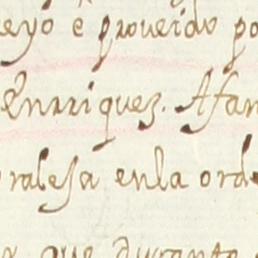 eyo è proueido po
Enrriquez. Afan
ralesa enla orde
que durante